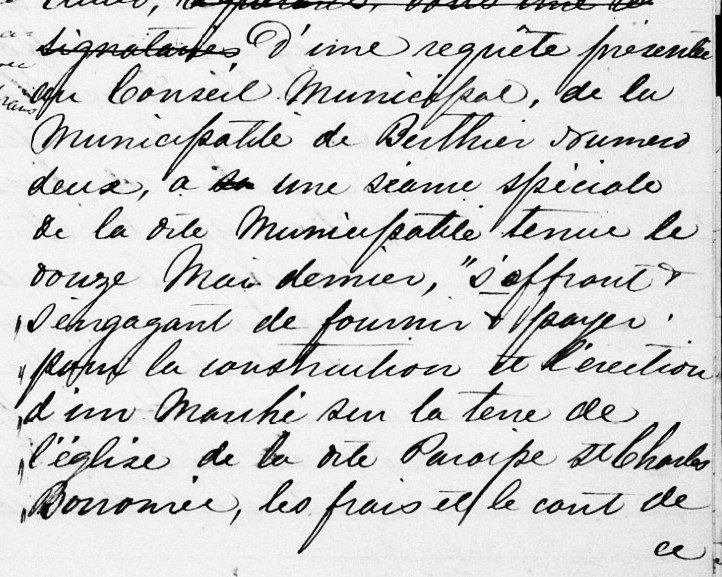 signataires D'une requête présentée
au Conseil Municipal, de la
Municipalité de Berthier Numero
deux, a sa une séance spéciale
de la dite Municipalité tenue le
douze Mai dernier, "s'offrant &
"s'engagant de fournir & payer
"pour la construction et l'érection
"d'un Marché sur la terre de
"l'église de la dite Paroisse St Charles
"Borromée, les frais et le cout de
ce